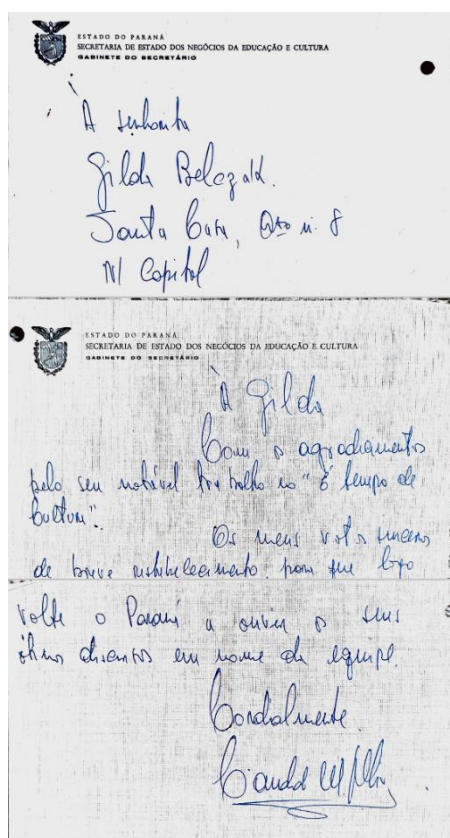 ESTADO DO PARANÁ
SECRETARIA DE ESTADO DOS NEGÓCIOS DA EDUCAÇÃO E CULTURA
GABINETE DO SECRETÁRIO
À senhorita
Gilda
Santa Casa, Qto n. 8
N/ Capital
ESTADO DO PARANÁ
SECRETARIA DE ESTADO DOS NEGÓCIOS DA EDUCAÇÃO E CULTURA
GABINETE DO SECRETÁRIO
À Gilda
Com os agradecimentos
pelo seu notável trabalho no "É tempo de
Cultura".
Os meus votos sinceros
de breve restabelecimento para que logo
volte o Paraná a ouvir os seus
ótimos discursos em nome da equipe.
Cordialmente